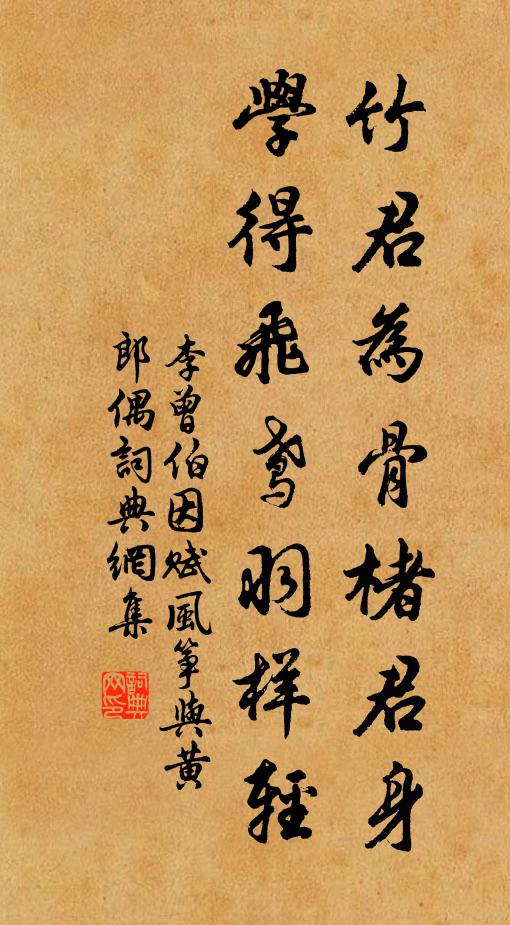 竹君為骨楮君身
學得飛鳶羽样輕
李曾伯因賦風筝與黄
郎偶詞典網集
詞典網印